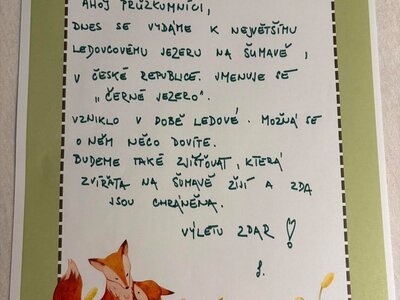 AHOJ PRŮZKUMNÍCI,
DNES SE VYDÁME K NEJVĚTŠÍMU
LEDOVCOVÉMU JEZERU NA ŠUMAVĚ,
V ČESKÉ REPUBLICE. JMENUJE SE
„ČERNÉ JEZERO".
VZNIKLO V DOBĚ LEDOVÉ. MOŽNÁ SE
O NĚM NĚCO DOVÍTE.
BUDEME TAKÉ ZJIŠŤOVAT, KTERÁ
ZVÍŘATA NA ŠUMAVĚ ŽIJÍ A ZDA
JSOU CHRÁNĚNA.
VÝLETU ZDAR!